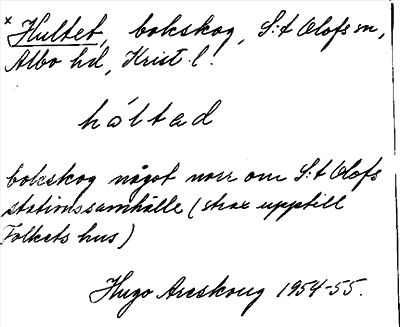 * Hultet, bokskog, S:t Olofs sn,
Albo hd, Krist. l.
hóltad
bokskog något norr om S:t Olofs
stationssamhälle (strax upptill
Folkets hus)
Hugo Areskoug 1954-55.